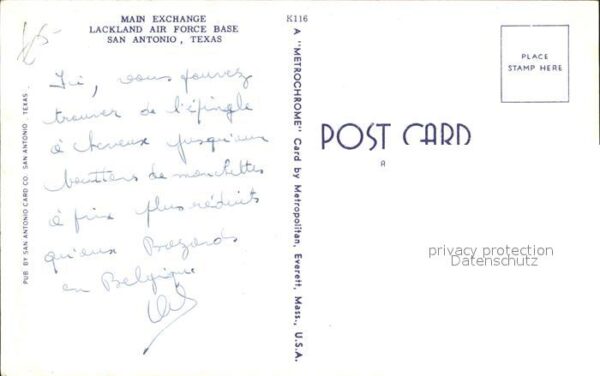 MAIN EXCHANGE
LACKLAND AIR FORCE BASE
SAN ANTONIO, TEXAS
K116
Ici, vous pouvez
trouver de l'épingle
à cheveux jusqu'aux
bouttons de manchettes
à prix plus réduits
qu'aux Bazards
en Belgique
PUB. BY SAN ANTONIO CARD CO. SAN ANTONIO TEXAS.
A "METROCHROME" Card by Metropolitan, Everett, Mass., U.S.A.
POST CARD
A
PLACE
STAMP HERE
privacy protection
Datenschutz